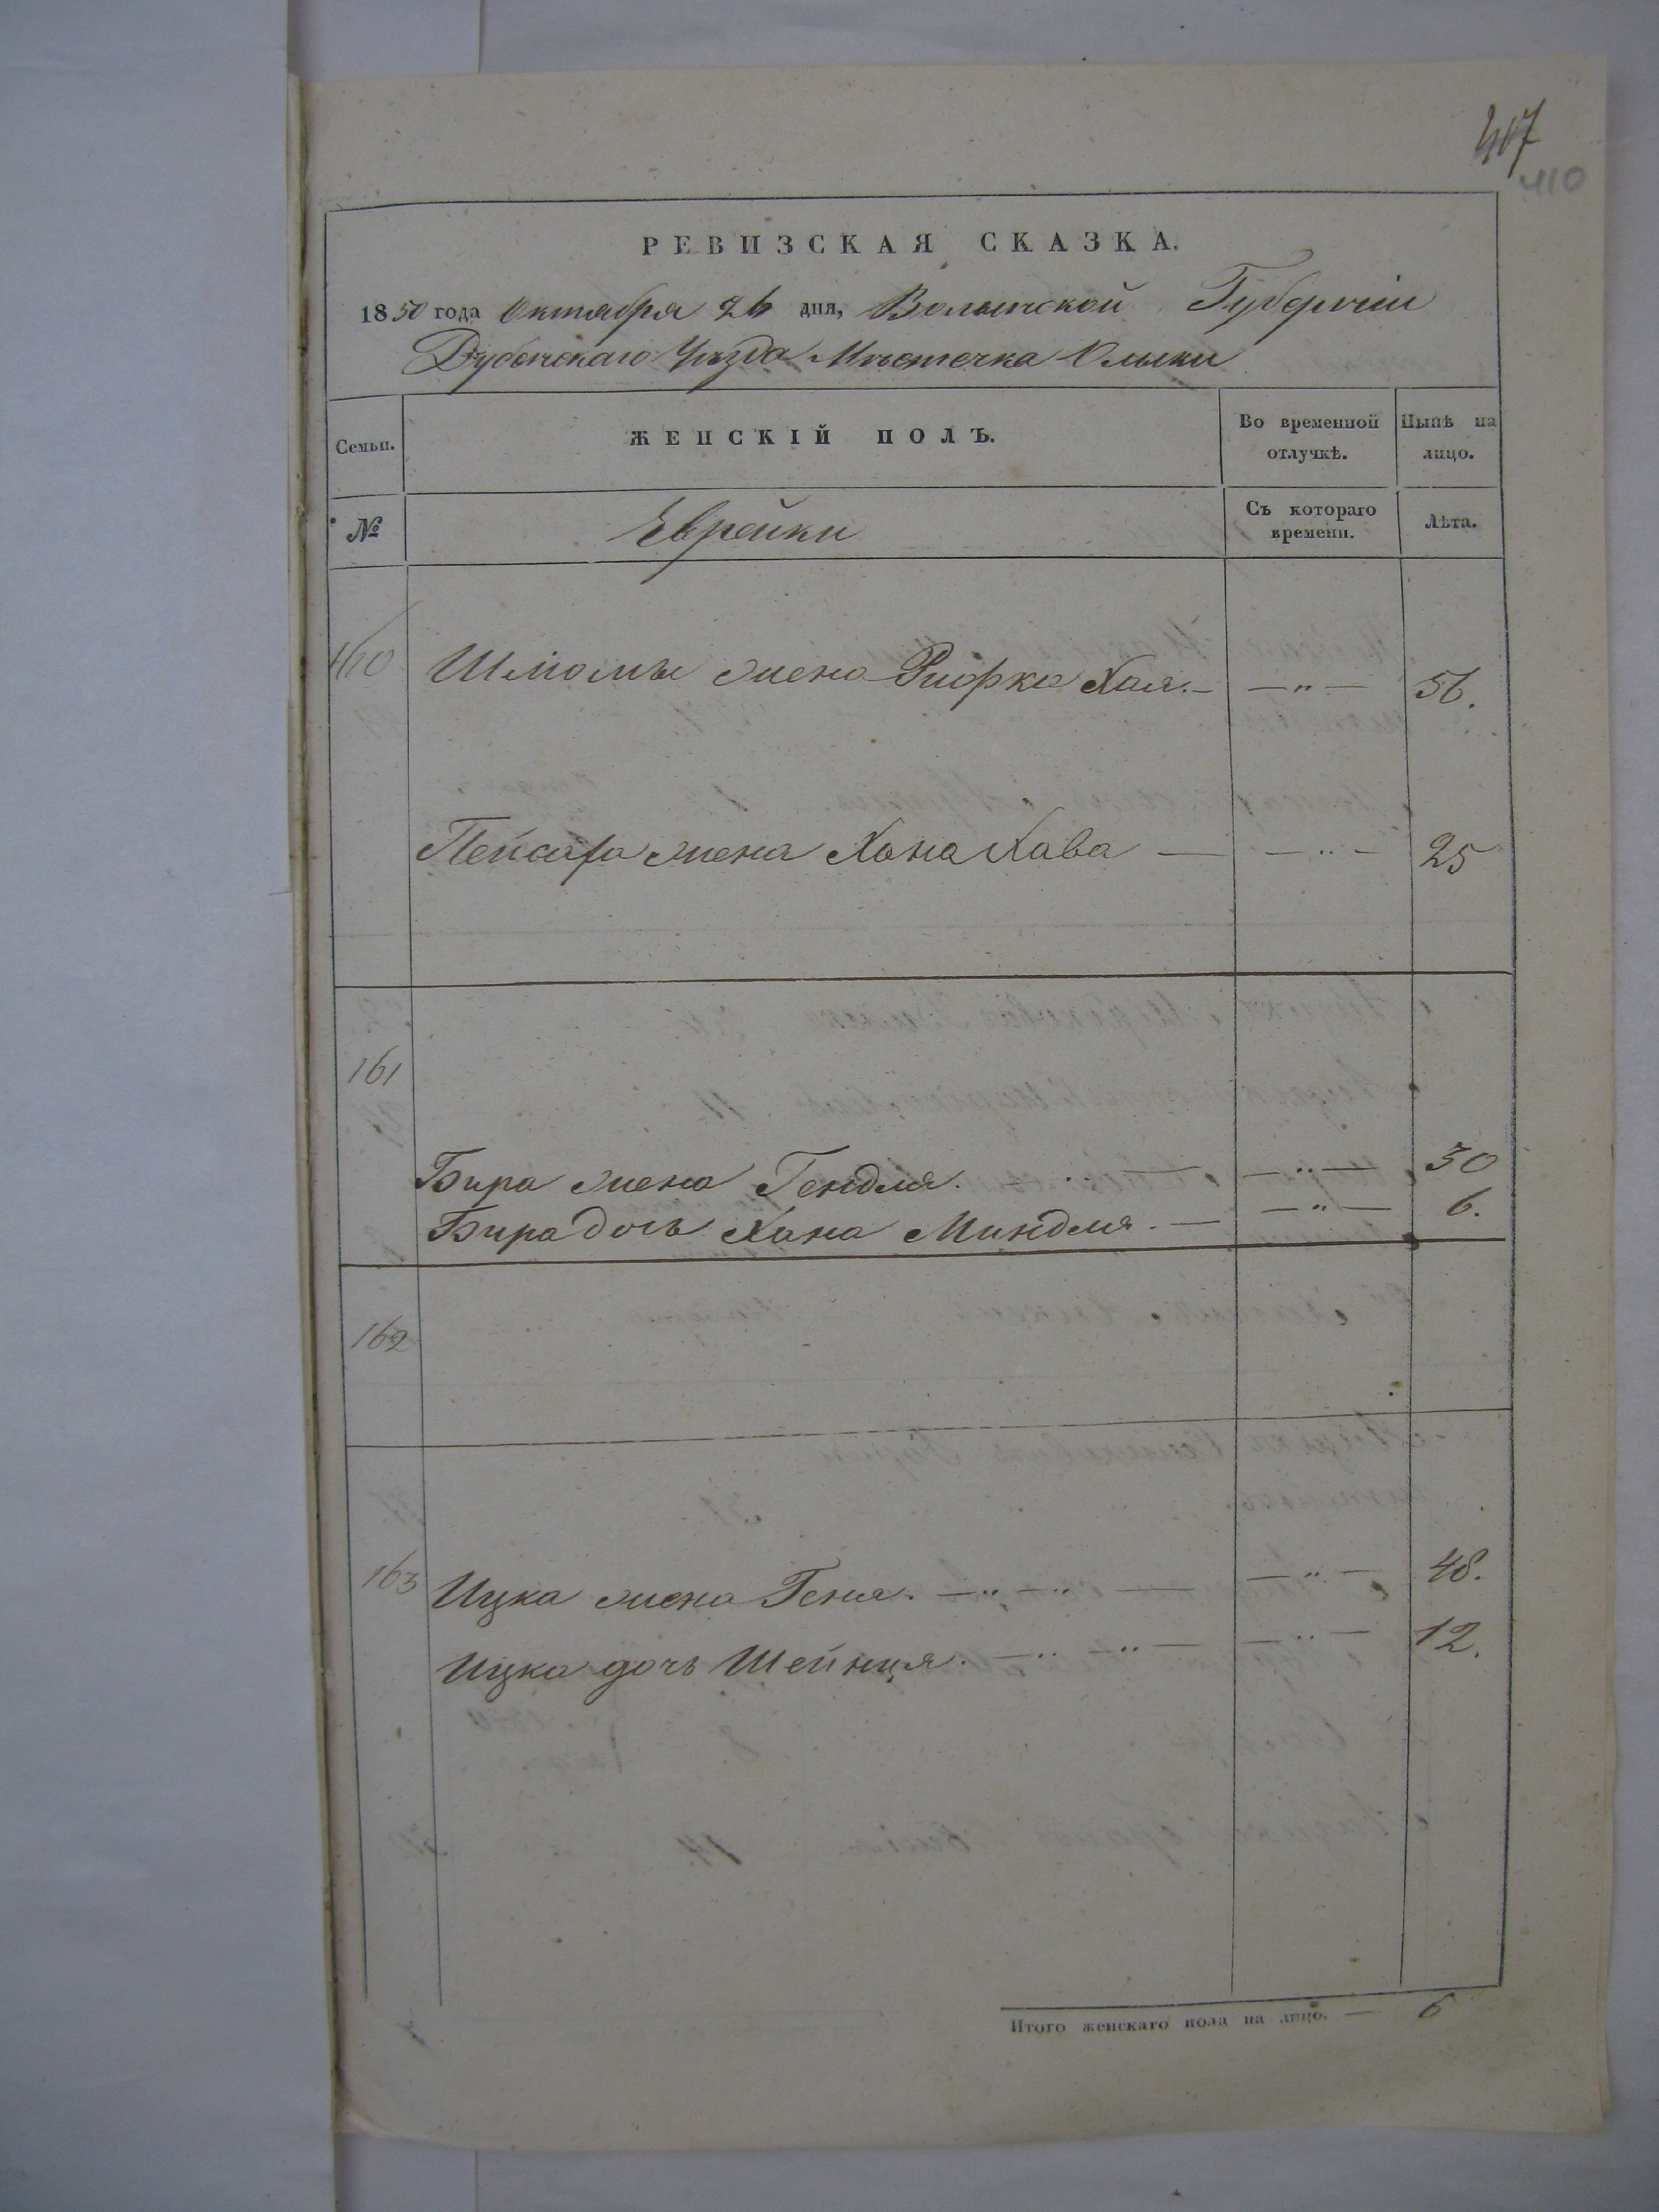 407
410
РЕВИЗСКАЯ СКАЗКА.
1850 года Октября 26 дня, Волынской Губерніи
Дубенскаго Уѣзда Мѣстечка Олыки
Семьи. ЖЕНСКІЙ ПОЛЪ. Во временной отлучкѣ. Нынѣ на лицо.
№ Еврейки Съ котораго времени. Лѣта.
160 Шліомы жена Рифка Хая. — — " — 56.
Пейсаха жена Хана Хава — — " — 25
161
Бира жена Гендля. — — " — 30
Бира дочь Хана Миндля. — — " — 6.
162
163 Ицка жена Геня. — " — " — — " — 48.
Ицка дочь Шейнця. — " — " — — " — 12.
Итого женскаго пола на лицо. — 6